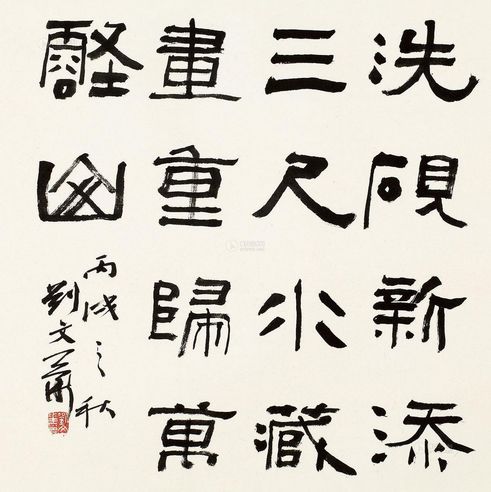 洗硯新添
三尺水藏
畫重歸萬
壑山
丙戌之秋
劉文華